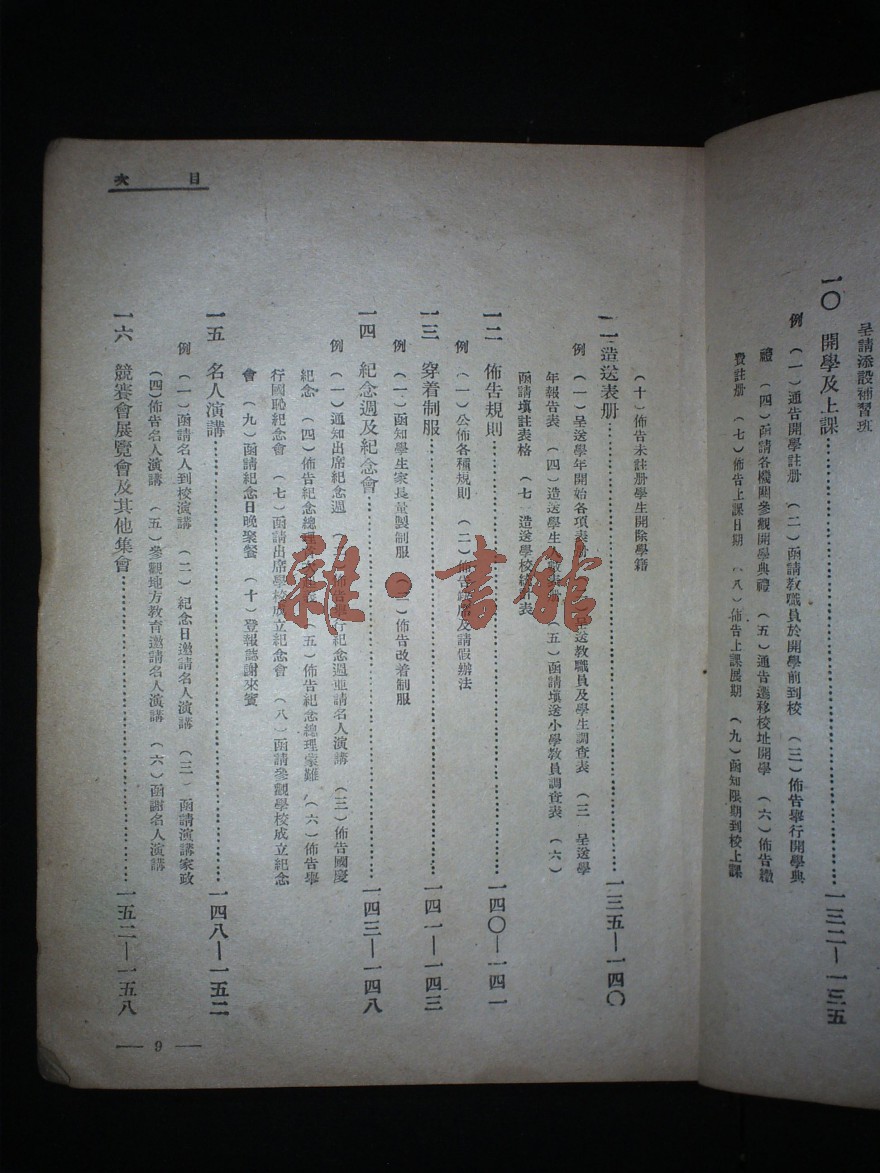 呈請添設補習班
一〇 開學及上課……一三二—一三五
例 (一)通告開學註册 (二)函請教職員於開學前到校 (三)佈告舉行開學典
禮 (四)函請各機關參觀開學典禮 (五)通告遷移校址開學 (六)佈告繳
費註册 (七)佈告上課日期 (八)佈告上課展期 (九)函知限期到校上課
(十)佈告未註册學生開除學籍
一一 造送表册……一三五—一四〇
例 (一)呈送學年開始各項表 呈送教職員及學生調查表 (三 呈送學
年報告表 (四)造送學生人 (五)函請填送小學教員調查表 (六)
函請填註表格 (七 造送學校 表
一二 佈告規則……一四〇—一四一
例 (一)公佈各種規則 (二)佈告 席及請假辦法
一三 穿着制服……一四一—一四三
例 (一)函知學生家長量製制服 (二)佈告改着制服
一四 紀念週及紀念會……一四三—一四八
例 (一)通知出席紀念週 佈告舉行紀念週並請名人演講 (三)佈告國慶
紀念 (四)佈告紀念總理 (五)佈告紀念總理蒙難 (六)佈告舉
行國恥紀念會 (七)函請出席學校成立紀念會 (八)函請參觀學校成立紀念
會 (九)函請紀念日晚聚餐 (十)登報誌謝來賓
一五 名人演講……一四八—一五二
例 (一)函請名人到校演講 (二)紀念日邀請名人演講 (三)函請演講家政
(四)佈告名人演講 (五)參觀地方教育邀請名人演講 (六)函謝名人演講
一六 競賽會展覽會及其他集會……一五二—一五八
目次
— 9 —
雜·書館